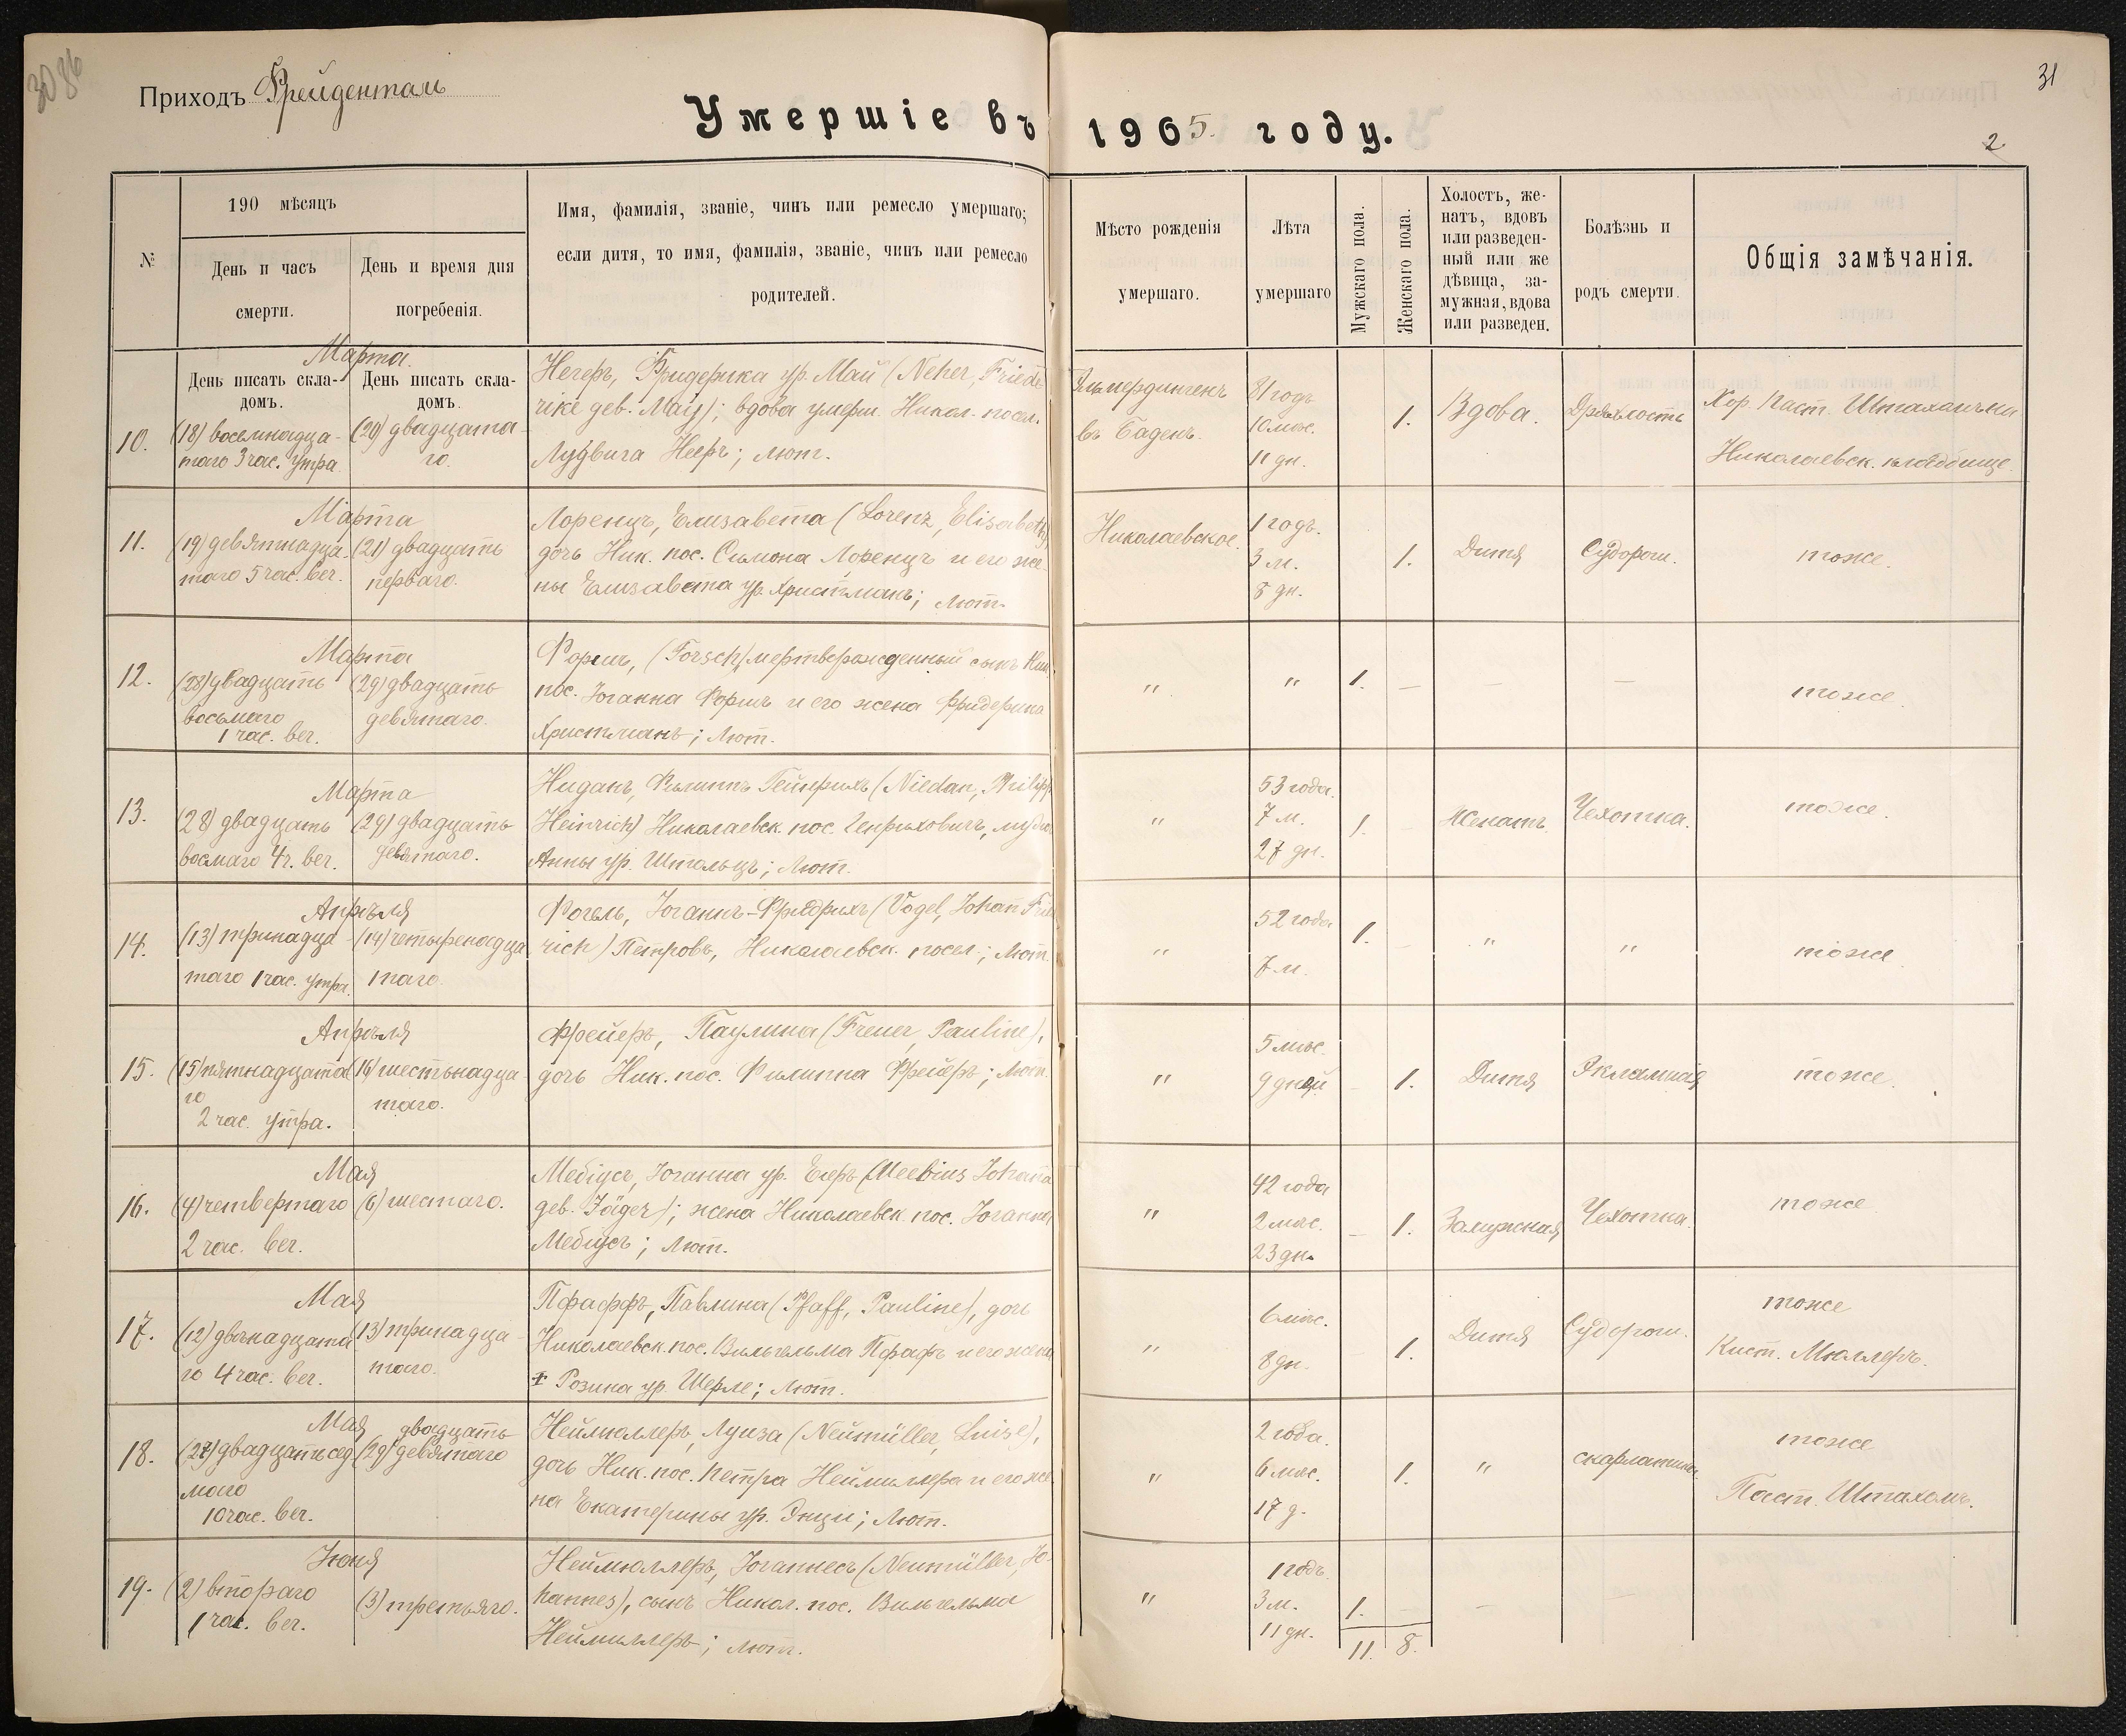 3086
Приходъ Фрейденталь
Умершіе въ 1905 году.
31
2
№
190 мѣсяцъ
День и часъ
смерти.
День и время дня
погребенія.
Имя, фамилія, званіе, чинъ или ремесло умершаго;
если дитя, то имя, фамилія, званіе, чинъ или ремесло
родителей.
Мѣсто рожденія
умершаго.
Лѣта
умершаго
Мужскаго пола.
Женскаго пола.
Холостъ, же-
натъ, вдовъ
или разведен-
ный или же
дѣвица, за-
мужная, вдова
или разведен.
Болѣзнь и
родъ смерти.
Общія замѣчанія.
Марта.
День писать скла-
домъ.
День писать скла-
домъ.
10.
(18) восьмнадца-
таго 3 час. утра
(20) двадцата-
го.
Негеръ, Фридерика ур. Май (Neher, Friede
rike geb. May); вдова умерш. Никол. посел.
Лудвига Нееръ; лют.
въ Баденъ.
81 годъ
10 мѣс.
11 дн.
1.
Вдова.
Дряхлость
Паст.
Николаевск. кладбище.
Марта
11.
(19) девятнадца-
таго 5 час. веч.
(21) двадцать
перваго.
Лоренцъ, Елизавета (Lorenz, Elisabeth),
дочь Ник. пос. Симона Лоренцъ и его же-
ны Елизавета ур. Христманъ; Лют.
Николаевское.
1 годъ.
3 м.
8 дн.
1.
Дитя
Судороги.
тоже.
Марта
12.
(28) двадцать
восьмаго
1 час. веч.
(29) двадцать
девятаго.
Форшъ, (Forsch) мертворожденный сынъ Ник.
пос. Іоганна Форшъ и его жена Фридерика
Христманъ; Лют.
"
"
1.
—
—
—
тоже.
Марта
13.
(28) двадцать
восмаго 4 ч. веч.
(29) двадцать
девятаго.
Ниданъ, Филиппъ Гейнрихъ (Niedan, Philipp
Heinrich) Николаевск. пос. Генриховичъ, мужъ
Анны ур. Штольцъ; Лют.
"
53 года.
7 м.
27 дн.
1.
Женатъ
Чехотка.
тоже.
Апрѣля
14.
(13) тринадца-
таго 1 час. утра.
(14) четыренадца
таго.
Фогель, Іоганнъ-Фридрихъ (Vogel, Johan Fried
rich) Петровъ, Николаевск. посел.; Лют.
"
52 года
7 м.
1.
"
"
тоже
Апрѣля
15.
(15) пятнадцата
го
2 час. утра.
(16) шестьнадца
таго.
Фрейеръ, Паулина (Freuer, Pauline),
дочь Ник. пос. Филиппа Фрейеръ; Лют.
"
5 мѣс.
9 дней
1.
Дитя
Экламщия
тоже.
Мая
16.
(4) четвертаго
2 час. веч.
(6) шестаго.
Мебіусъ, Іоганна ур. Егеръ (Meebius Johana
geb. Jäger); жена Николаевск. пос. Іоганна
Мебіусъ; Лют.
"
42 года
2 мѣс.
23 дн.
—
1.
Замужная
Чехотка.
тоже
Мая
17.
(12) двѣнадцата
го 4 час. веч.
(13) тринадца-
таго.
Пфаффъ, Павлина (Pfaff, Pauline), дочь
Николаевск. пос. Вильгельма Пфафъ и его жены
Розина ур. Шерле; Лют.
"
6 мѣс.
8 дн.
1.
Дитя
Судороги.
тоже
Кист. Мюллеръ.
Мая
18.
(27) двадцать сед
маго
10 час. веч.
двадцать
(29) девятаго
Неймюллеръ, Луиза (Neumüller, Luise),
дочь Ник. пос. Петра Неймиллера и его же
на Екатерины ур. Энци; Лют.
"
2 года.
6 мѣс.
17 д.
1.
"
скарлатина
тоже
Паст. Штахомъ.
Іюня
19.
(2) втораго
1 час. веч.
(3) третьяго.
Неймюллеръ, Іоганнесъ (Neumüller, Jo-
hannes), сынъ Никол. пос. Вильгельма
Неймиллеръ; лют.
"
1 годъ.
3 м.
11 дн.
1.
—
—
11.
8.